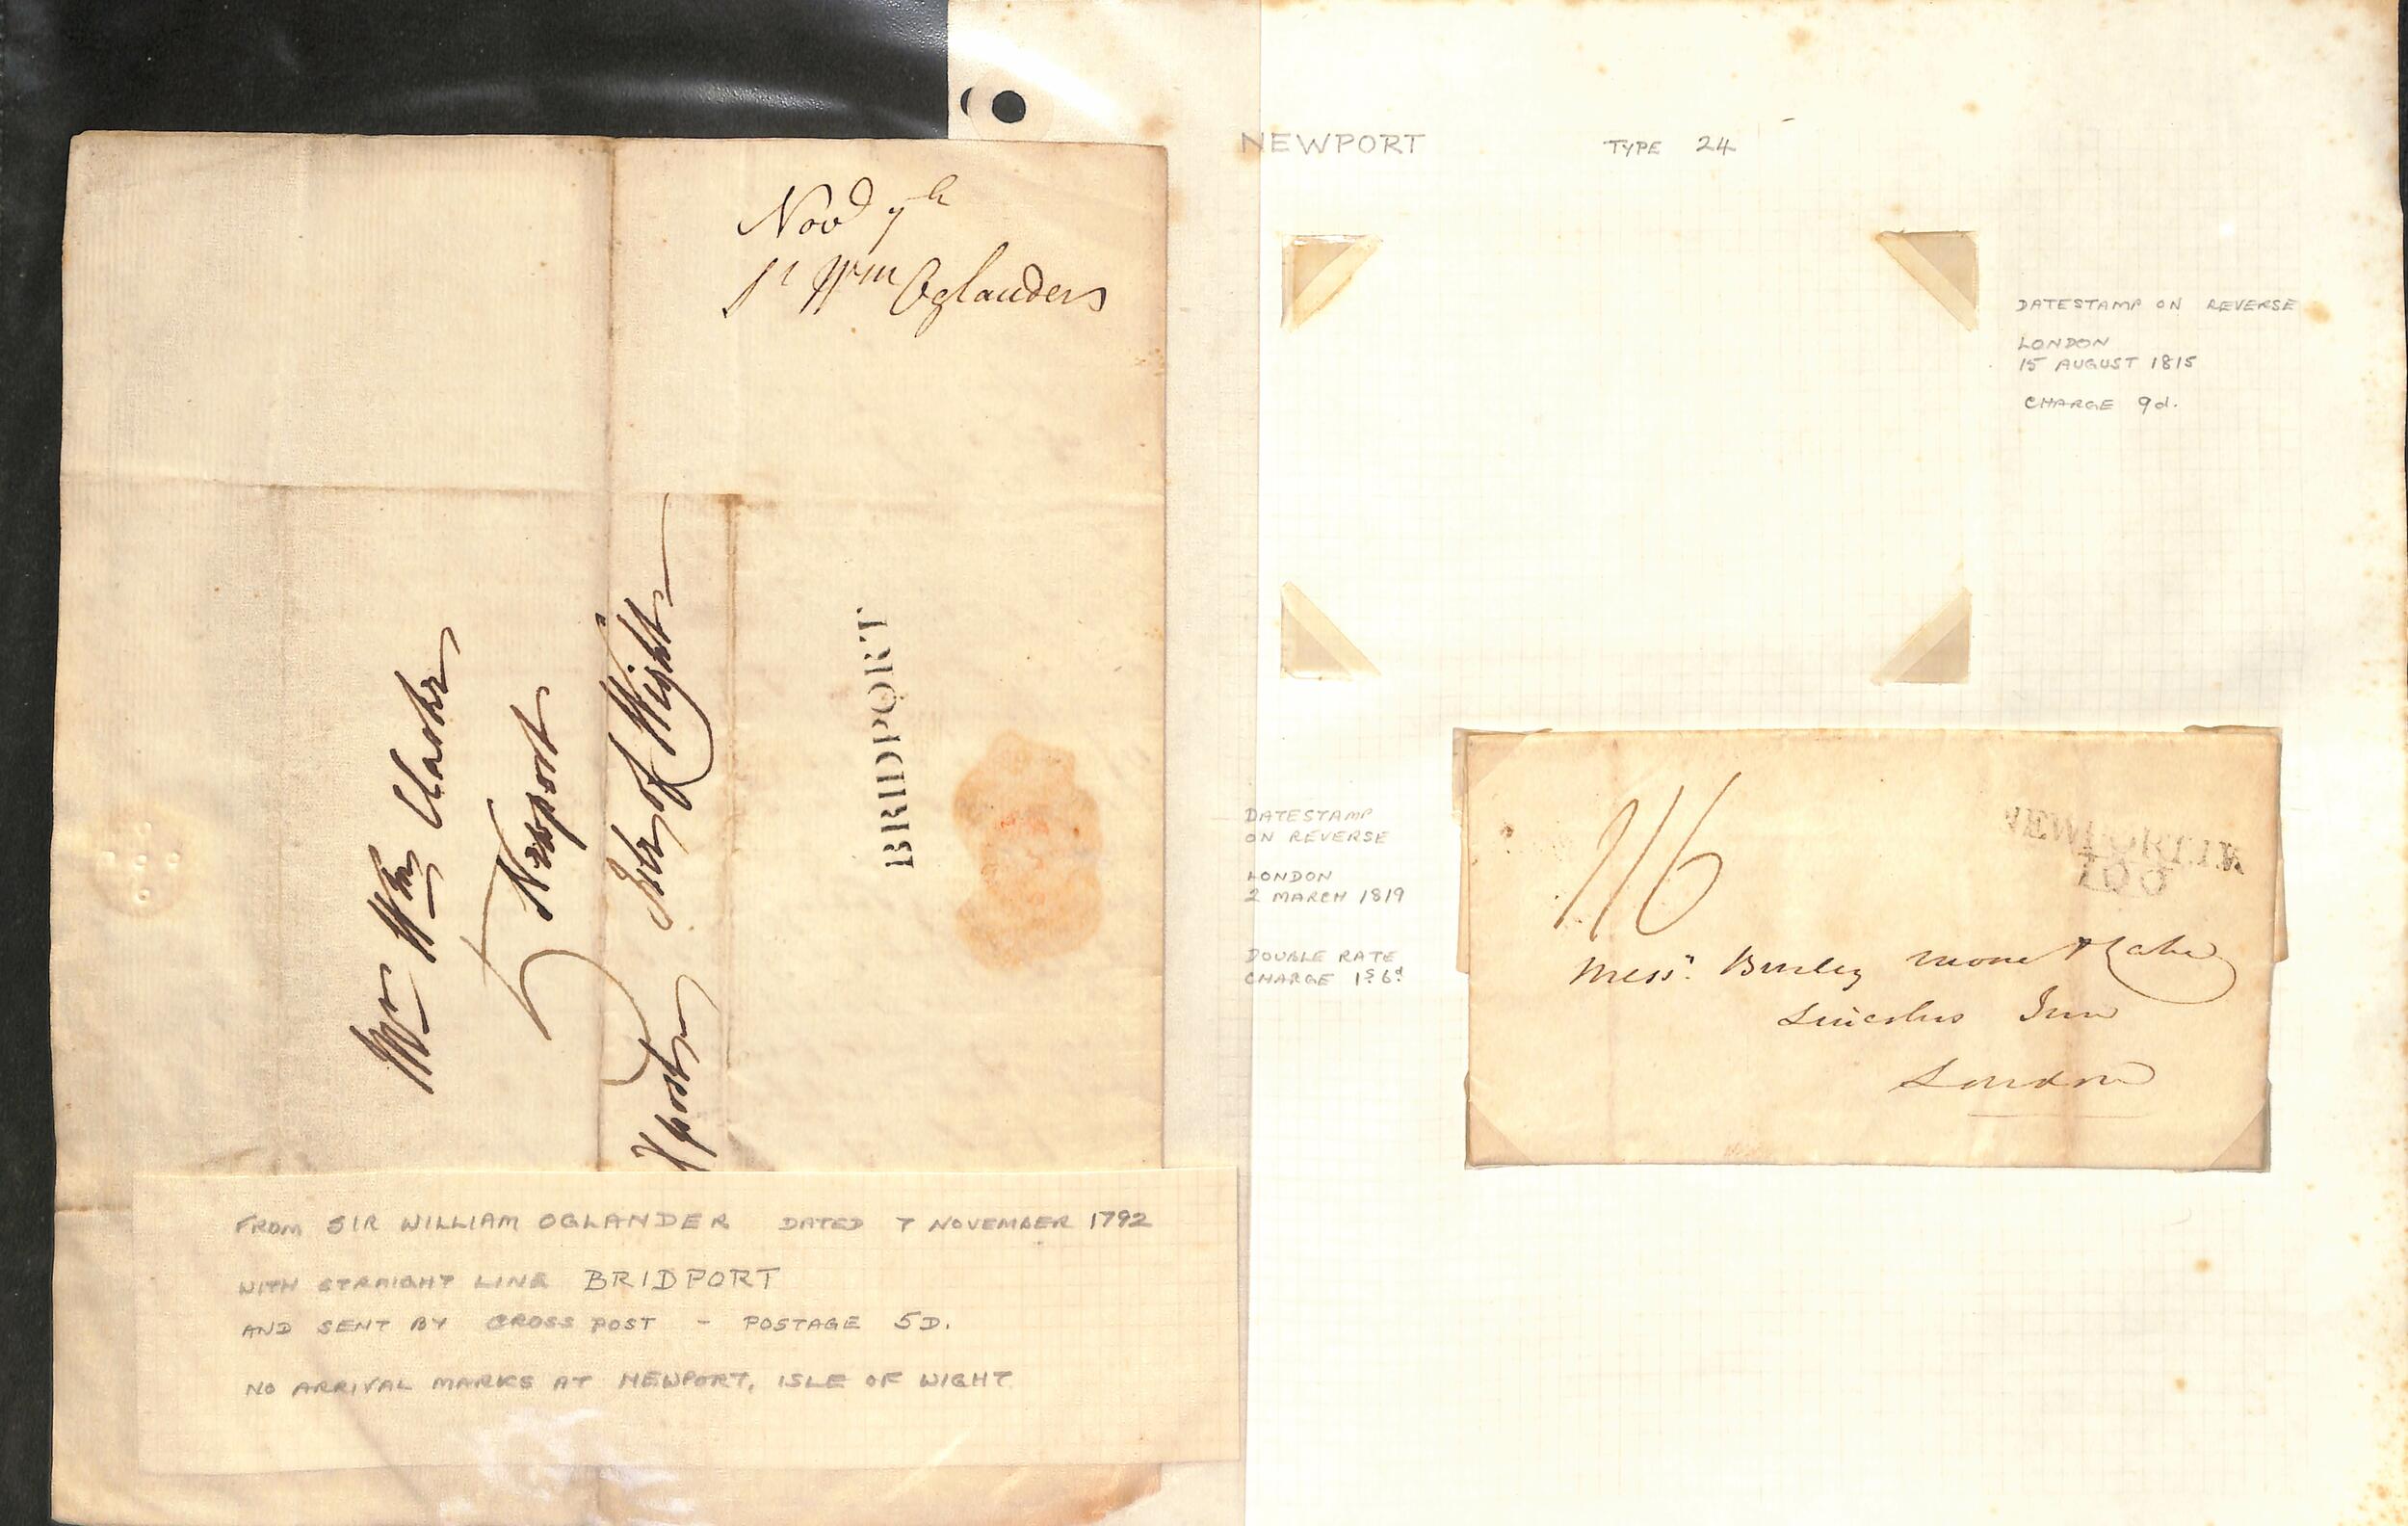 Nov 7th
Sr Wm Oglanders
Mr Wm Clarke
Newport
Isle of Wight
X post
5
BRIDPORT
FROM SIR WILLIAM OGLANDER DATED 7 NOVEMBER 1792
WITH STRAIGHT LINE BRIDPORT
AND SENT BY CROSS POST - POSTAGE 5D.
NO ARRIVAL MARKS AT NEWPORT, ISLE OF WIGHT
NEWPORT TYPE 24
DATESTAMP ON REVERSE
LONDON
15 AUGUST 1815
CHARGE 9d.
DATESTAMP
ON REVERSE
LONDON
2 MARCH 1819
DOUBLE RATE
CHARGE 1s 6d
1/6
NEWPORT I.W
100
Messrs. Burley Moore &
Lincolns Inn
London